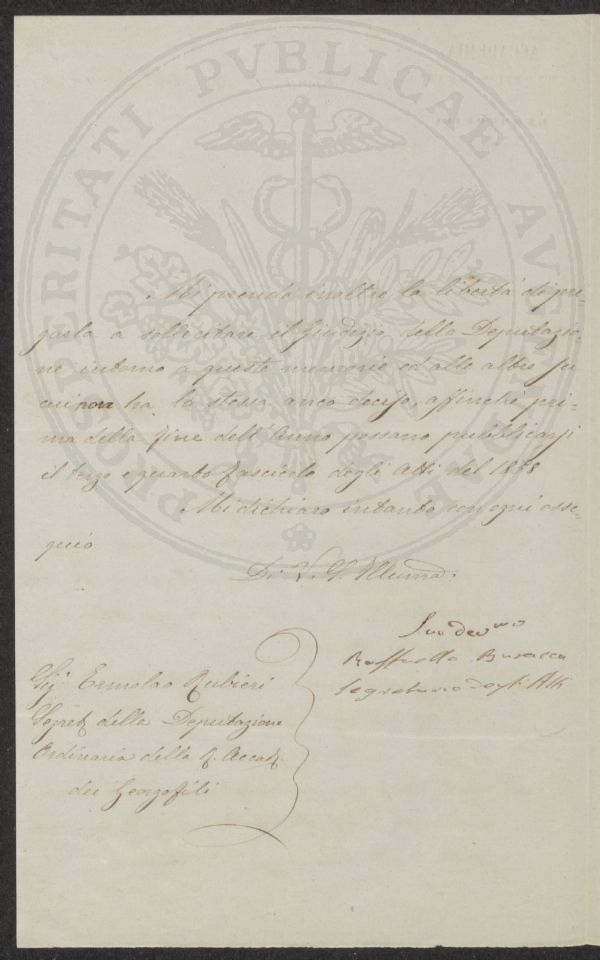 PROSPERITATI PVBLICAE AVGENDAE
Mi prendo inoltre la libertà di pre,
garla a sollecitare il Giudizio della Deputazio,
ne intorno a queste memorie ed alle altre su
cui non ha la stessa anco deciso, affinchè pri,
ma della fine dell'Anno possano pubblicarsi
il terzo e quarto fascicolo degli Atti del 1858
Mi dichiaro intanto con ogni osse,
quio
Di V. S. Illuma.
Suo devmo
Raffaello Busacca
Segretario degli Atti
Sigr Ermolao Rubieri
Segret della Deputazione
Ordinaria della R. Accad.
dei Georgofili